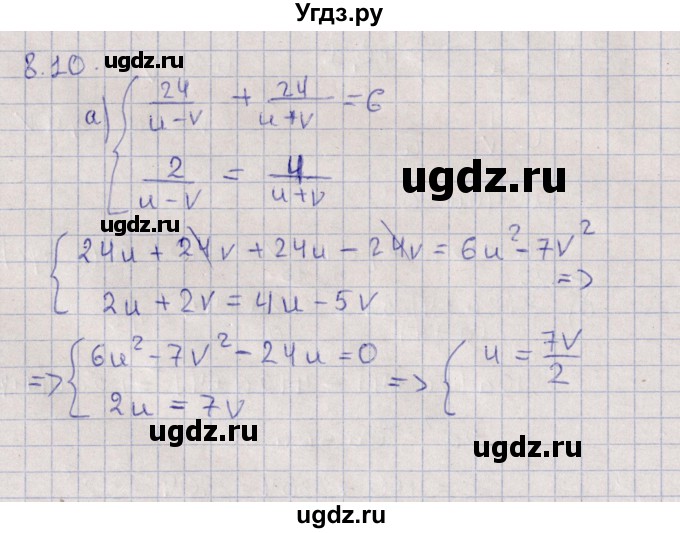 Угдз.ру
8.10
ugdz.ru
а) { 24/(u-v) + 24/(u+v) = 6
2/(u-v) = 4/(u+v)
ugdz.ru
{ 24u + 24v + 24u - 24v = 6u² - 7v²
=>
2u + 2v = 4u - 5v
ugdz.ru
=> { 6u² - 7v² - 24u = 0
2u = 7v
=> { u = 7v/2
ugdz.ru
ugdz.ru
ugdz.ru